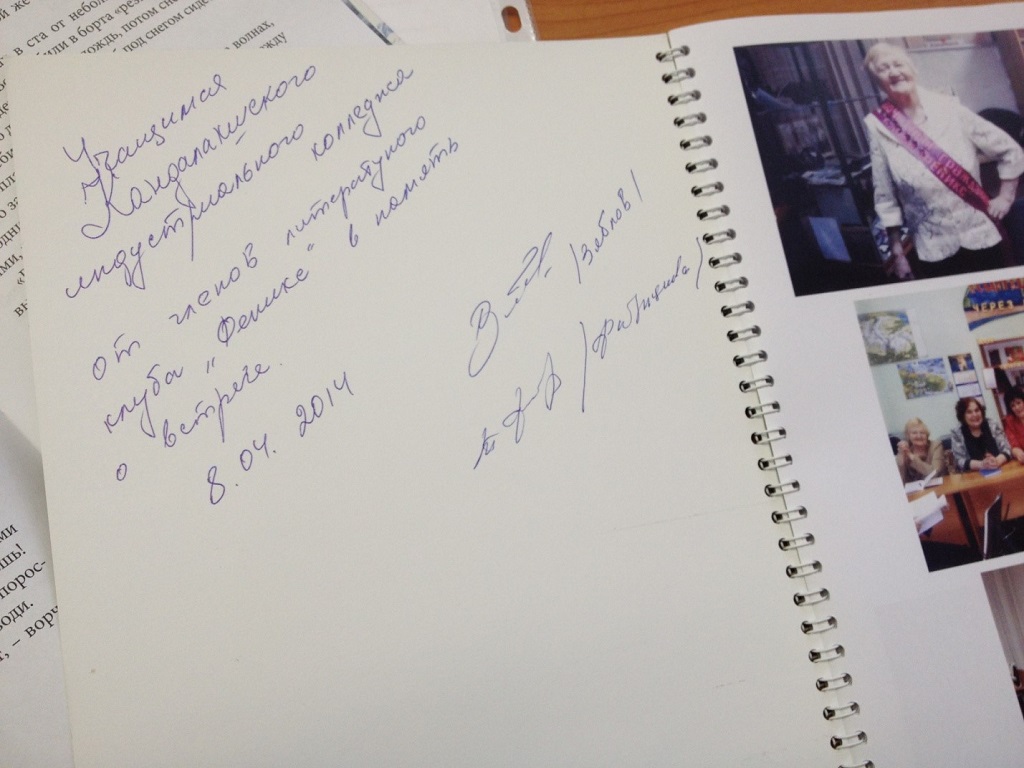 в ста от небол
били в борта "рез
ождь, потом сне
под снегом сиде
волнах,
жду
Учащимся
Кандалакшского
индустриального
колледжа
от членов литературного
клуба „Феникс" в память
о встрече.
8.04. 2014
/Зяблов/
ЧЕРЕЗ
ми
шь!
порос-
води.
т, – ворч